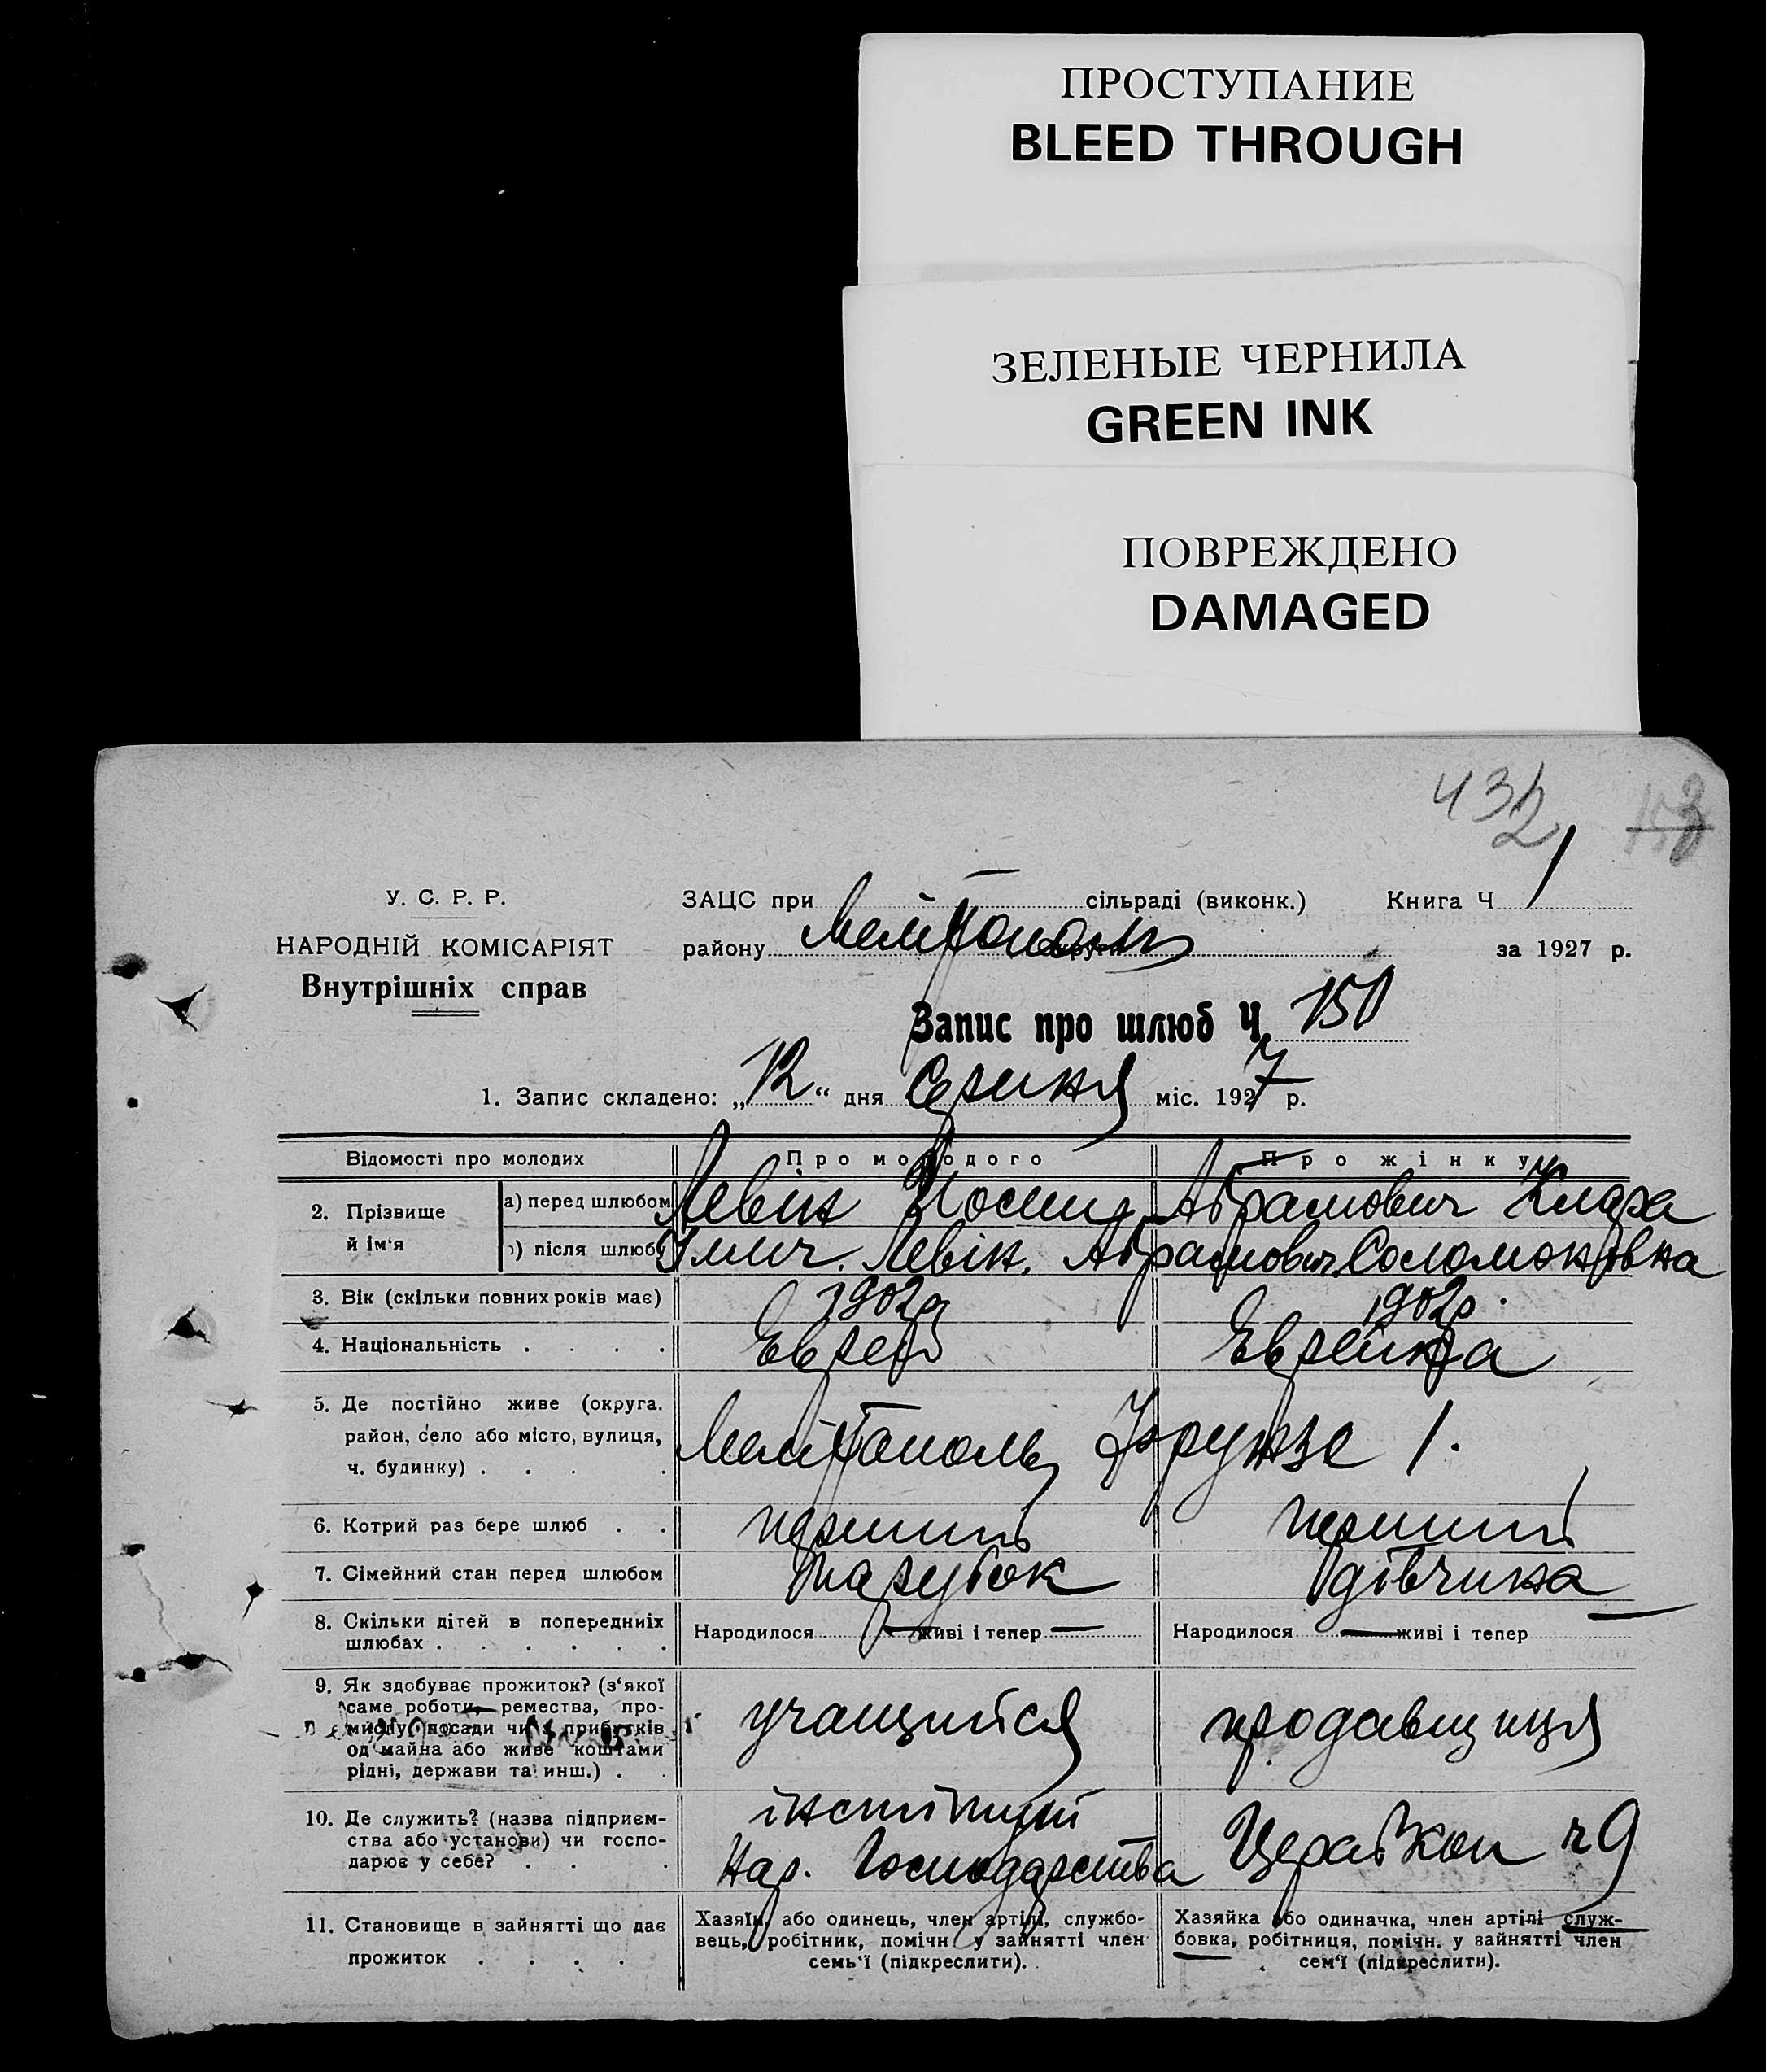 ПРОСТУПАНИЕ
BLEED THROUGH
ЗЕЛЕНЫЕ ЧЕРНИЛА
GREEN INK
ПОВРЕЖДЕНО
DAMAGED
432
У. С. Р. Р.
НАРОДНІЙ КОМІСАРІЯТ
Внутрішніх справ
ЗАЦС при сільраді (виконк.) Книга Ч 1
району Мелітополь округи за 1927 р.
Запис про шлюб Ч. 150
1. Запис складено: „12“ дня Серпня міс. 1927 р.
Відомості про молодих Про молодого Про жінку
2. Прізвище й ім‘я
а) перед шлюбом Левін Иосип Абрамович Клара
б) після шлюбу Ілліч. Левін. Абрамович Соломонівна
3. Вік (скільки повних років має) 1902р 1902р.
4. Національність . . . . Еврей Еврейка
5. Де постійно живе (округа.
район, село або місто, вулиця,
ч. будинку) . . . . Мелітополь Фрунзе 1.
6. Котрий раз бере шлюб . . перший перший
7. Сімейний стан перед шлюбом парубок дівчина
8. Скільки дітей в попередниіх
шлюбах . . . . . .
Народилося — живі і тепер —
Народилося — живі і тепер
9. Як здобуває прожиток? (з‘якої
саме роботи, ремества, про-
мислу, посади чи з прибутків
од майна або живе коштами
рідні, держави та инш.) . .
учащийся продавщиця
10. Де служить? (назва підприєм-
ства або установи) чи госпо-
дарює у себе? . . .
інституті
Нар. Господарства
Церабкоп ч 9
11. Становище в зайнятті що дає
прожиток . . . .
Хазяїн, або одинець, член артілі, службо-
вець, робітник, помічн у зайнятті член
семь‘ї (підкреслити).
Хазяйка або одиначка, член артілі служ-
бовка, робітниця, помічн. у зайнятті член
сем‘ї (підкреслити).